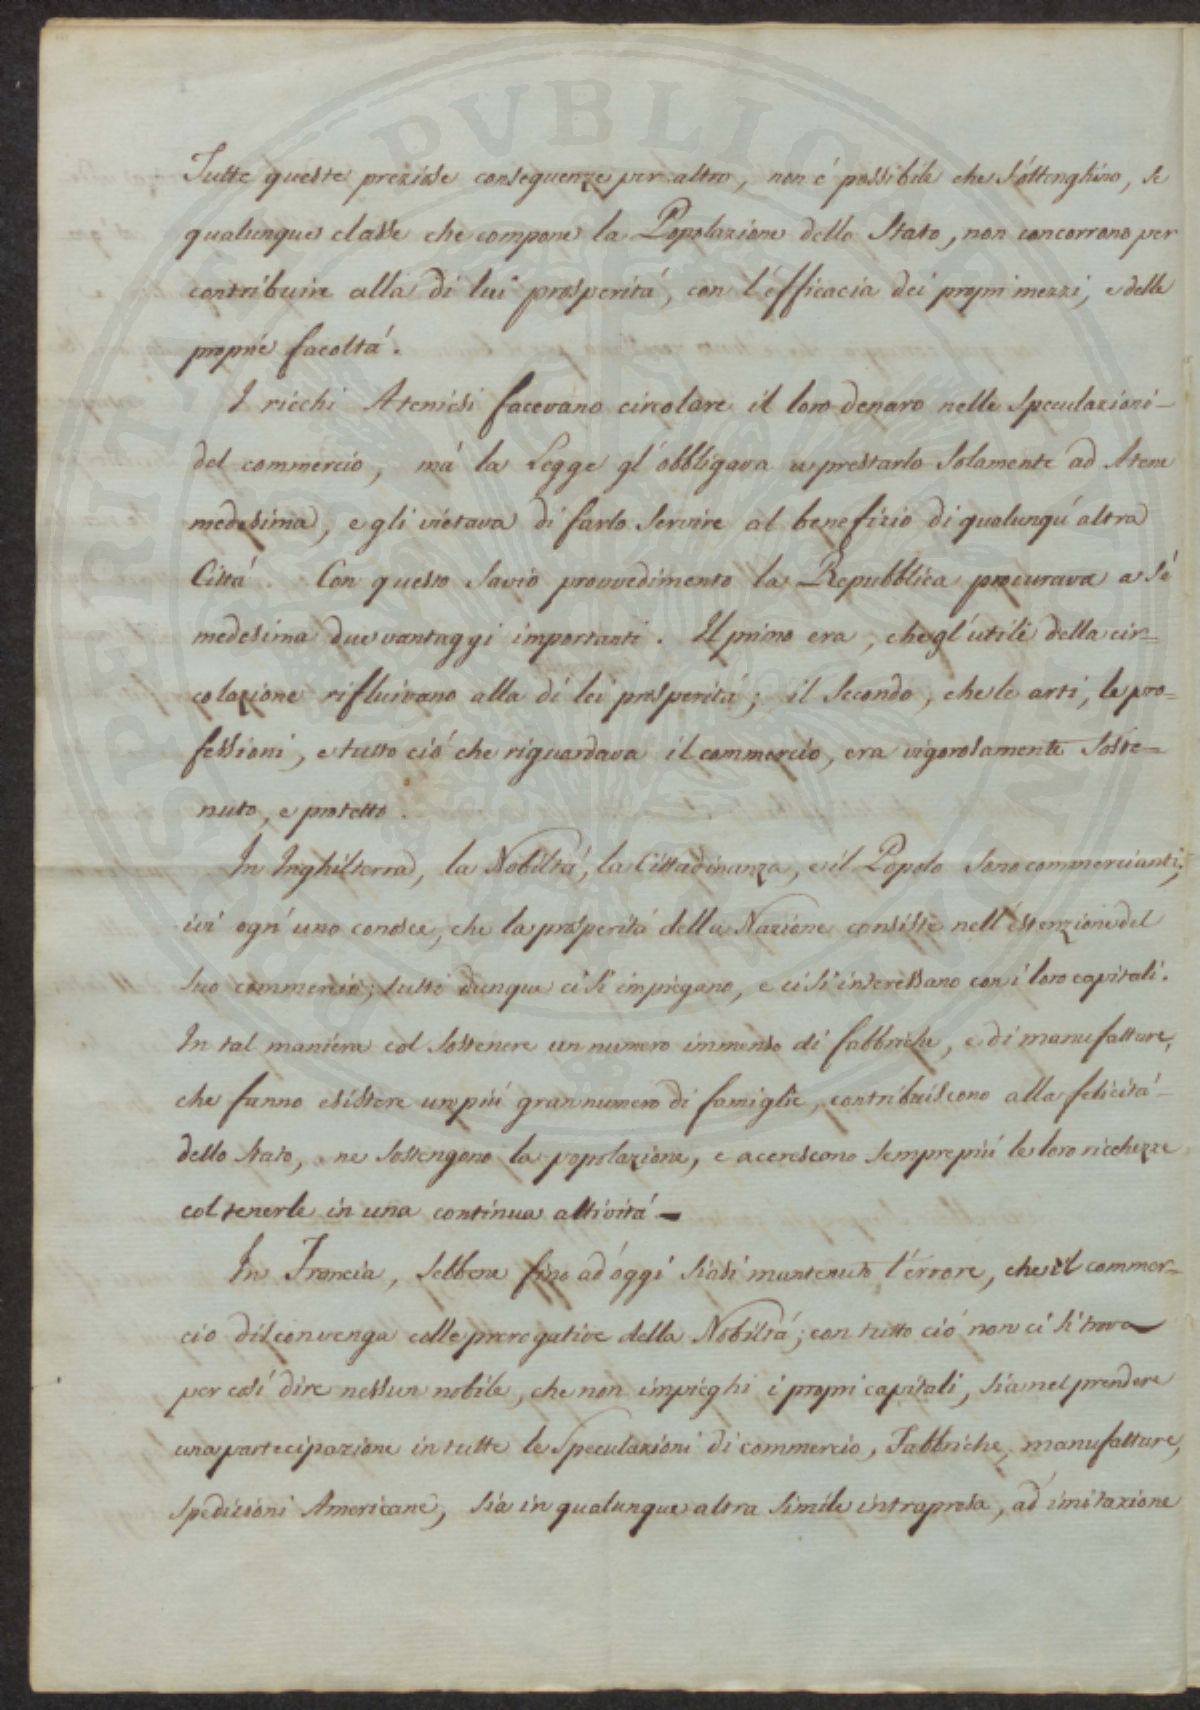 Tutte queste preziose conseguenze per altro, non é possibile che s'ottenghino, se
qualunque classe che compone la Popolazione dello Stato, non concorrono per
contribuire alla di lui prosperitá, con l'efficacia dei propri mezzi, e delle
proprie facoltá.
I ricchi Ateniesi facevano circolare il loro denaro nelle speculazioni
del commercio, má la Legge gl'obbligava a prestarlo solamente ad Atene
medesima, e gli vietava di farlo servire al benefizio di qualunqu'altra
Cittá. Con questo savio provvedimento la Repubblica procurava a sé
medesima due vantaggi importanti. Il primo era, che gl'utili della cir-
colazione rifluivano alla di lei prosperitá; il secondo, che le arti, le pro-
fessioni, e tutto ció che riguardava il commercio, era vigorosamente soste-
nuto, e protetto.
In Inghilterra, la Nobiltá, la Cittadinanza, e il Popolo sono commercianti;
ivi ogn'uno conosce, che la prosperitá della Nazione consiste nell'estenzione del
suo commercio; tutti dunque ci si impiegano, e ci si interessano con i loro capitali.
In tal maniera col sostenere un numero immenso di fabbriche, e di manufatture,
che fanno esistere un piú gran numero di famiglie, contribuiscono alla felicitá
dello Stato, ne sostengono la popolazione, e accrescono sempre piú le loro ricchezze
col tenerle in una continua attivitá
In Francia, sebbene fino ad oggi siasi mantenuto l'errore, che il commer-
cio disconvenga colle prerogative della Nobiltá; con tutto ció non ci si trova
per cosí dire nessun nobile, che non impieghi i propri capitali, sia nel prendere
una partecipazione in tutte le speculazioni di commercio, Fabbriche, manufatture,
spedizioni Americane, sia in qualunque altra simile intrapresa, ad imitazione